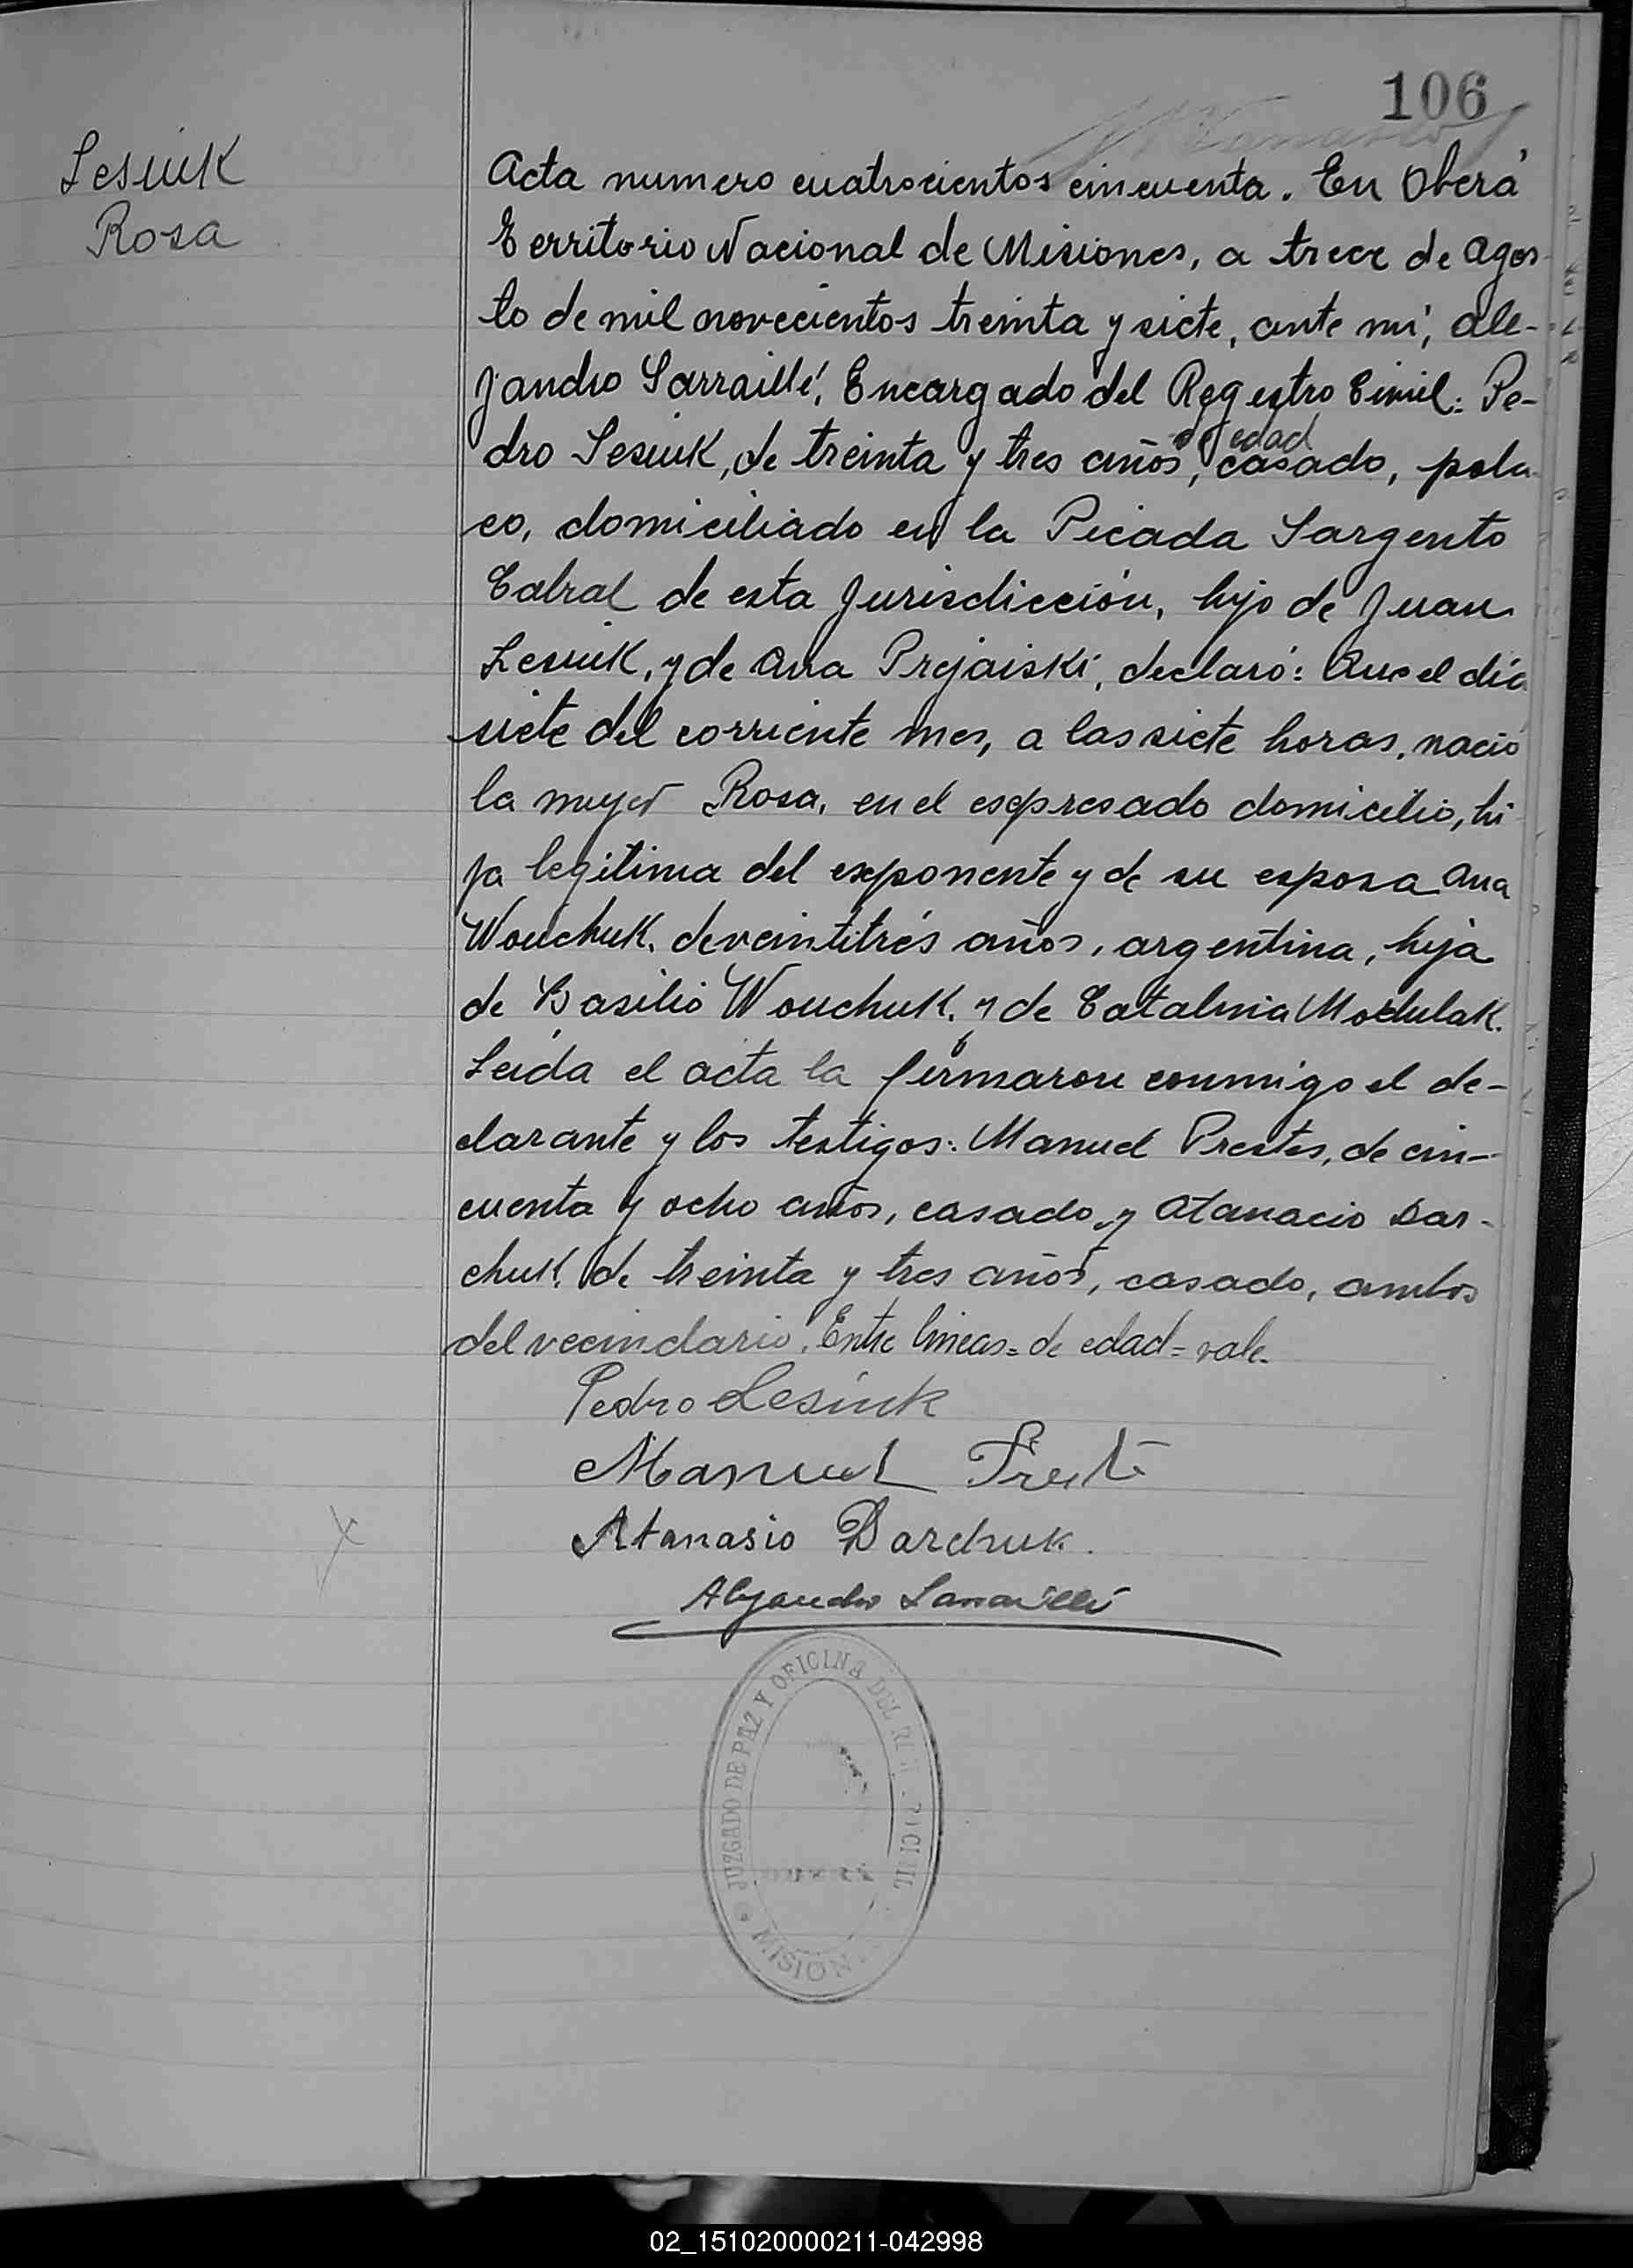 106
Lesiuk
Rosa
Acta numero cuatrocientos cincuenta. En Oberá
Territorio Nacional de Misiones, a trece de Agos
to de mil novecientos treinta y siete, ante mí, Ale-
jandro Sarraillé, Encargado del Registro Civil: Pe-
dro Lesiuk, de treinta y tres años de edad, casado, pola
co, domiciliado en la Picada Sargento
Cabral de esta Jurisdicción, hijo de Juan
Lesiuk, y de Ana Prejaiski, declaró: Que el día
siete del corriente mes, a las siete horas, nació
la mujer Rosa, en el expresado domicilio, hi
ja legitima del exponente y de su esposa Ana
Wouchuk, de veintitrés años, argentina, hija
de Basilio Wouchuk, y de Catalina Modulak.
Leida el acta la firmaron conmigo el de-
clarante y los testigos: Manuel Prestes, de cin-
cuenta y ocho años, casado, y Atanacio Dar-
chuk, de treinta y tres años, casado, ambos
del vecindario. Entre lineas = de edad = vale.
Pedro Lesiuk
Manuel
Atanasio Darchuk.
Alejandro Sarraillé
JUZGADO DE PAZ Y OFICINA DEL CIVIL
02_151020000211-042998